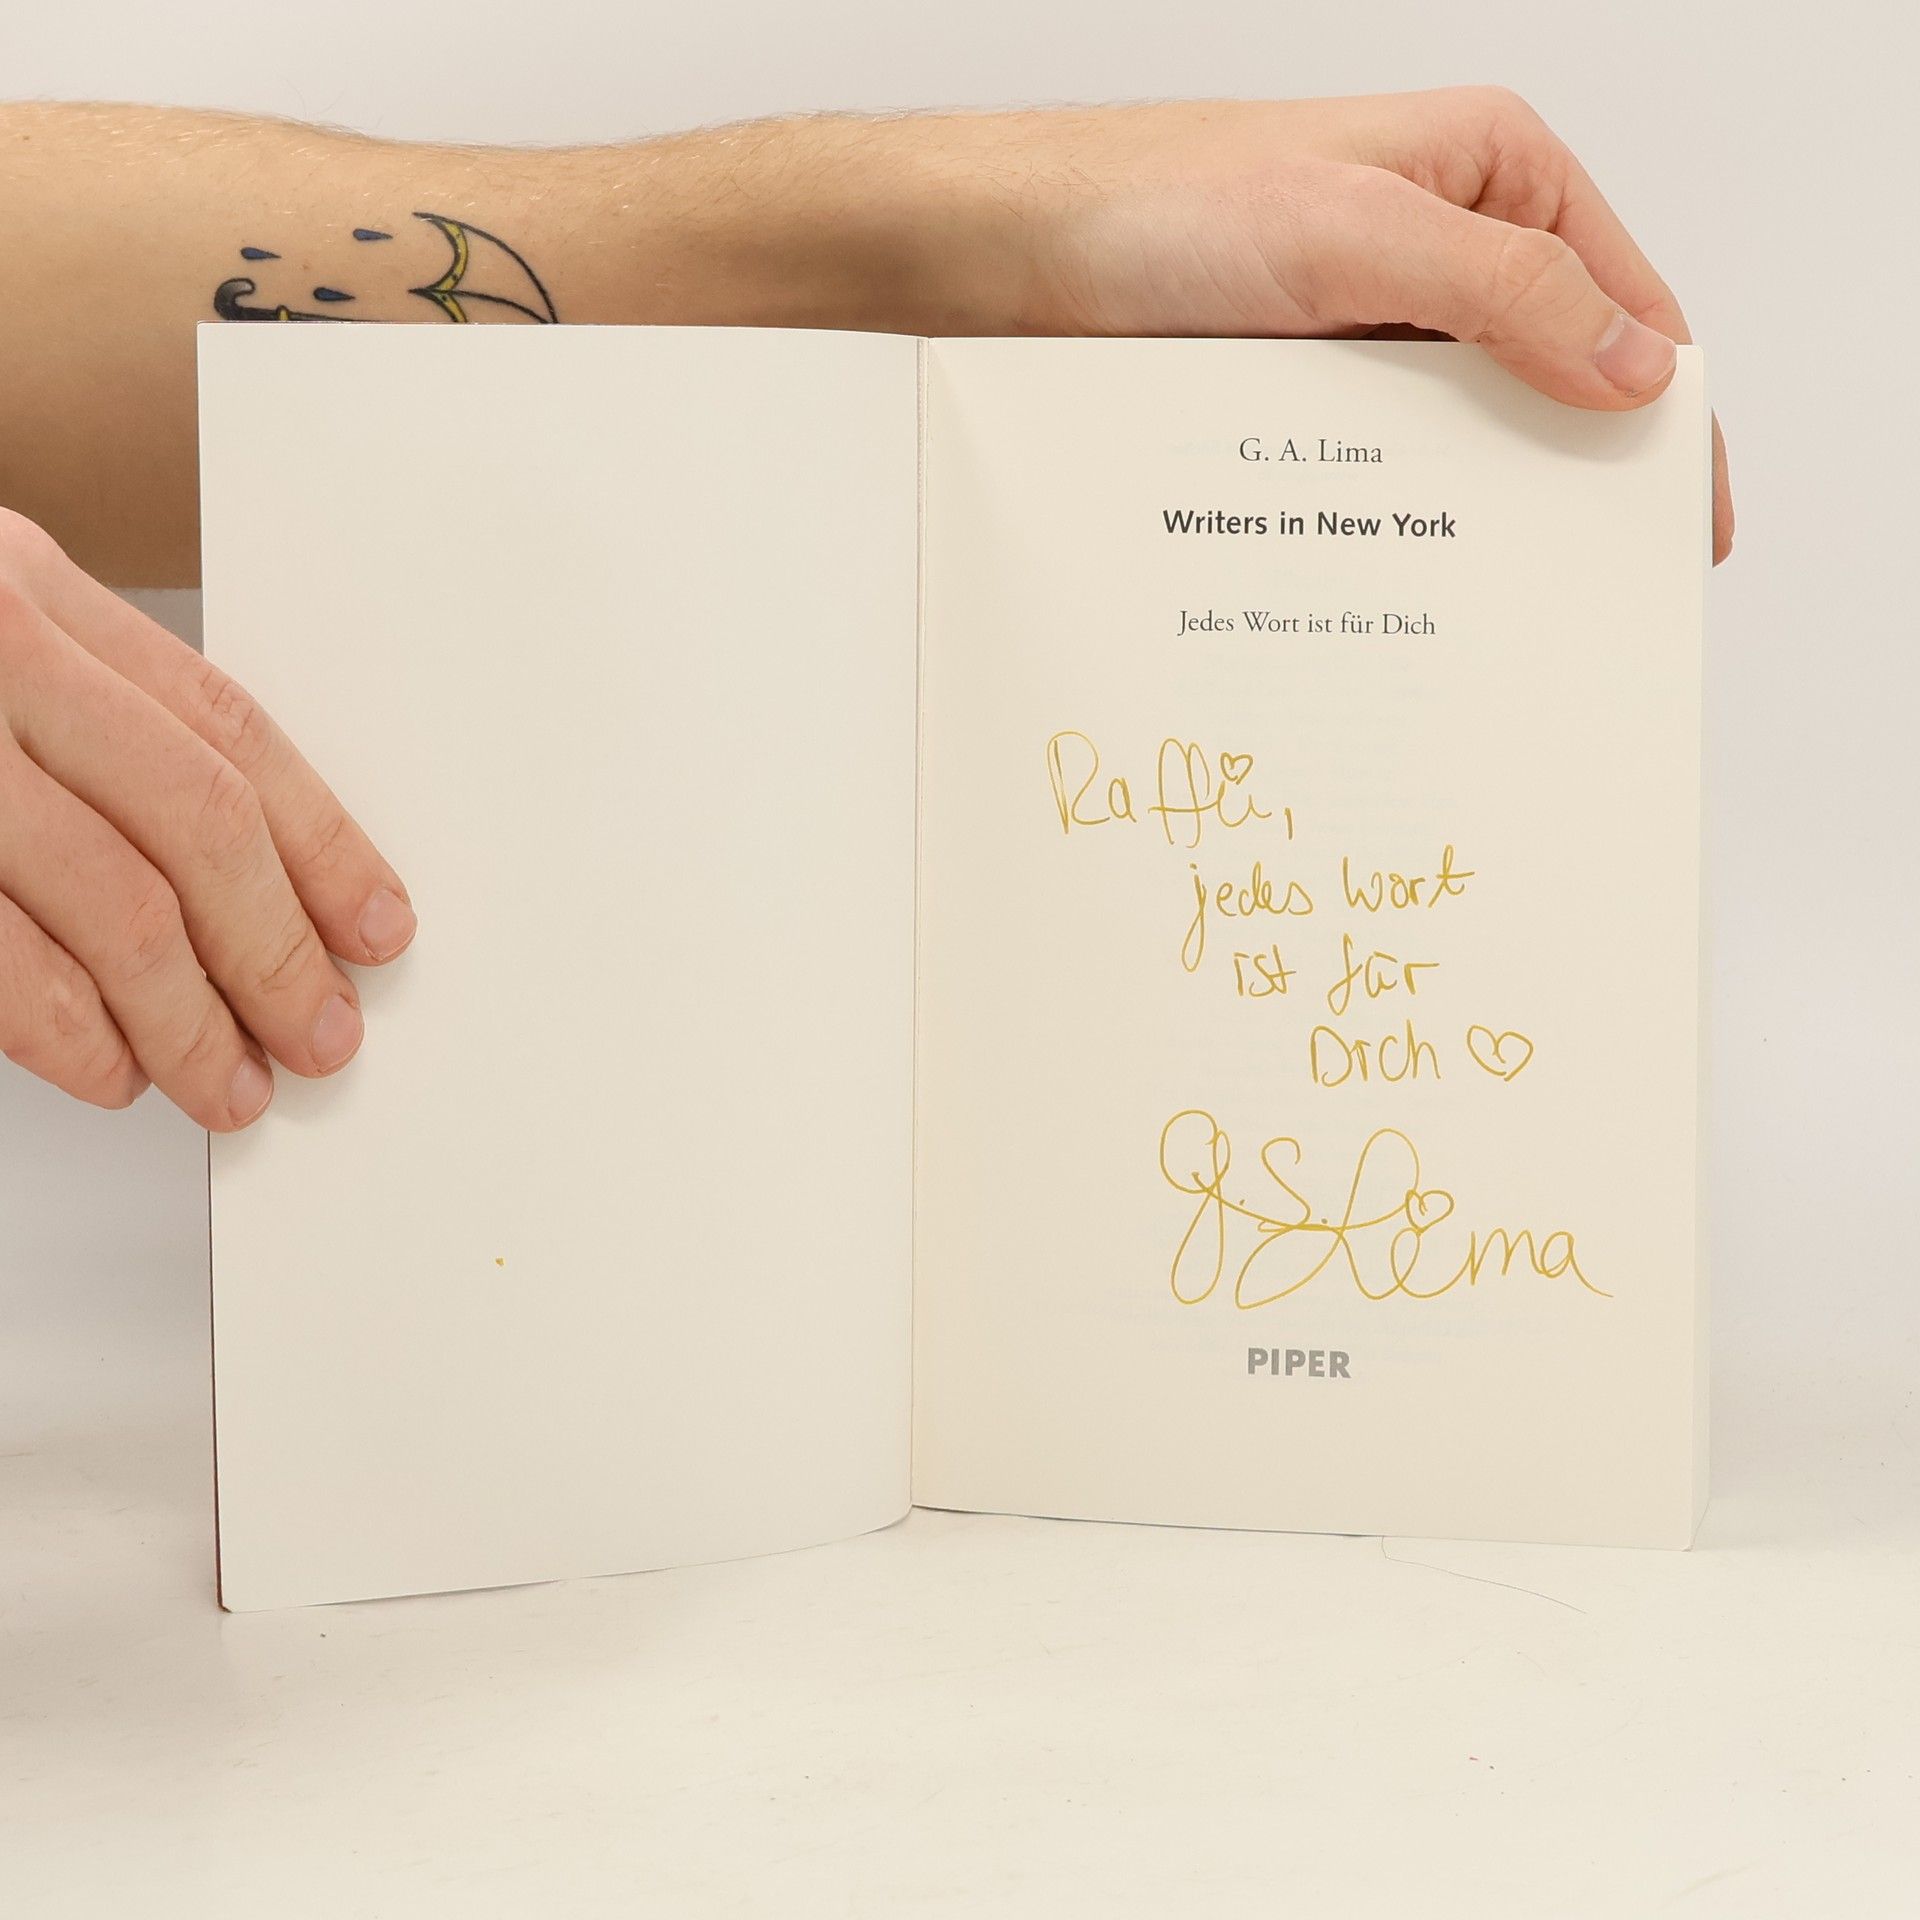 G. A. Lima
Writers in New York
Jedes Wort ist für Dich
Raffi,
jedes Wort
ist für
Dich
G.S. Lima
PIPER